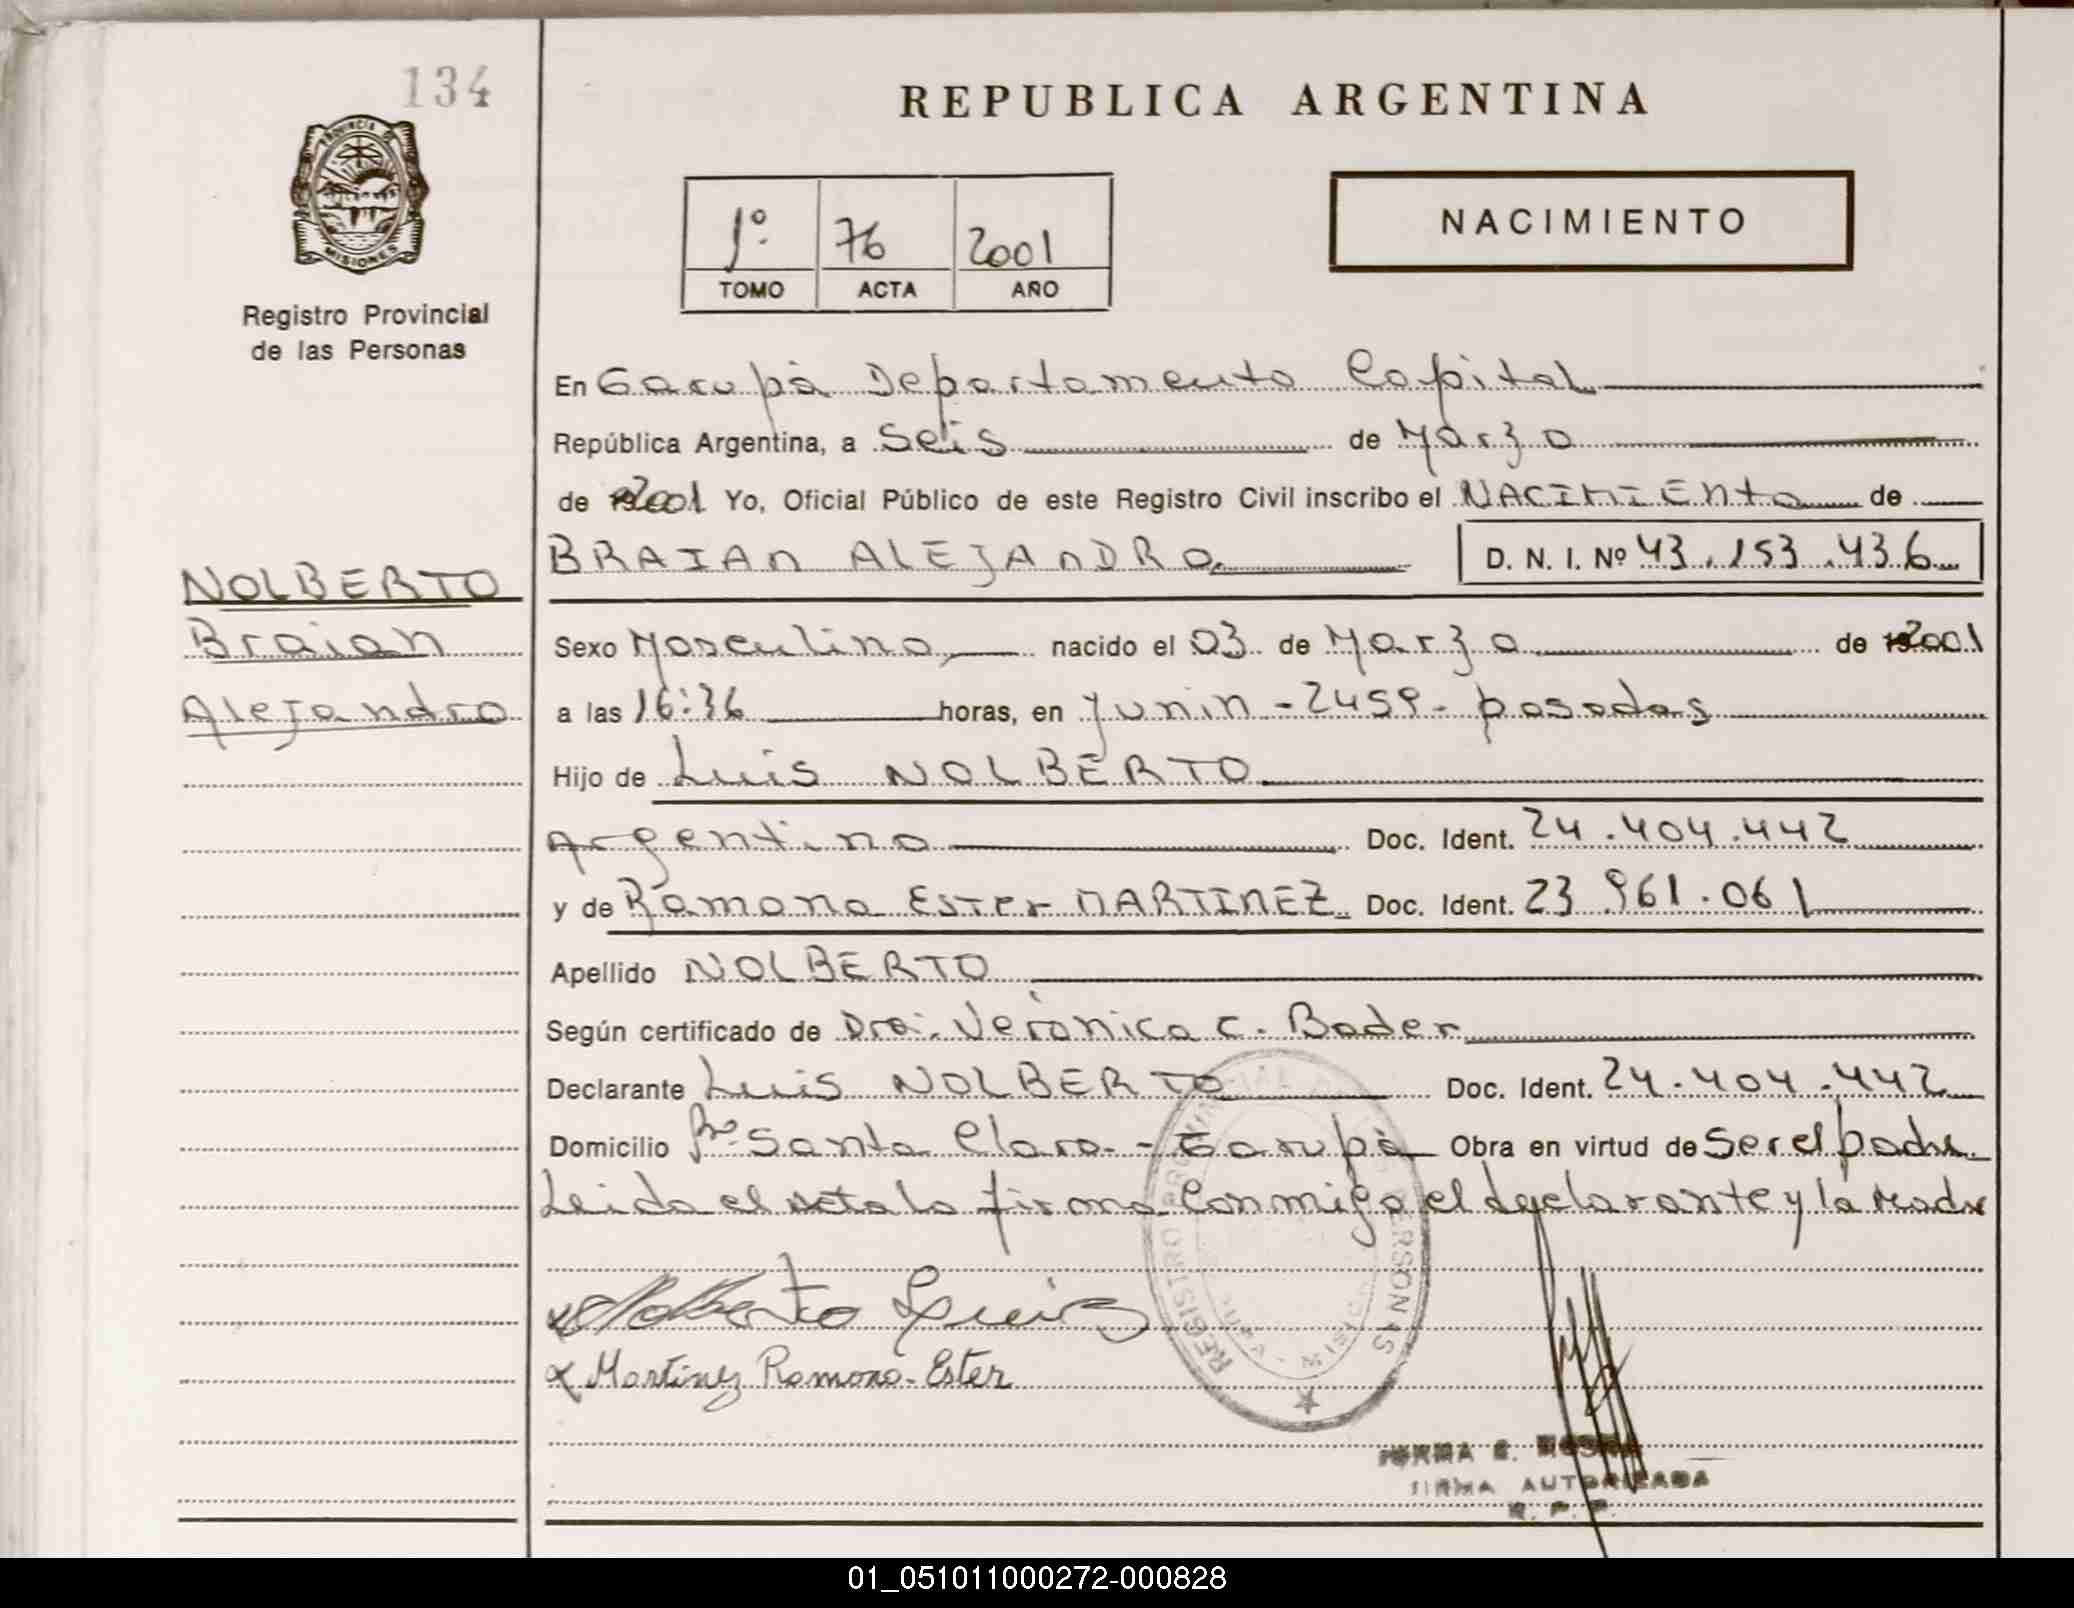 134
REPUBLICA ARGENTINA
PROVINCIA DE
MISIONES
NACIMIENTO
1º 76 2001
TOMO ACTA AÑO
Registro Provincial
de las Personas
En Garupá Departamento Capital
República Argentina, a Seis de Marzo
de 2001 Yo, Oficial Público de este Registro Civil inscribo el NACIMIENto de
BRAIAN ALEJANDRO D. N. I. Nº 43.153.436
NOLBERTO
Braian
Alejandro
Sexo Masculino, nacido el 03 de Marzo de 2001
a las 16:36 horas, en Junin - 2459 - posadas
Hijo de Luis NOLBERTO
Argentino Doc. Ident. 24.404.442
y de Ramona Ester MARTINEZ Doc. Ident. 23.961.061
Apellido NOLBERTO
Según certificado de Dra. Verónica C. Bader
Declarante Luis NOLBERTO Doc. Ident. 24.404.442
Domicilio Bº Santa Clara - Garupá Obra en virtud de Ser el padre
Leida el acta la firma Conmigo el declarante y la Madre
Nolberto Luis
x Martinez Ramona Ester
REGISTRO PROVINCIAL DE LAS PERSONAS
NORMA E.
FIRMA AUTORIZADA
R. P. P.
01_051011000272-000828